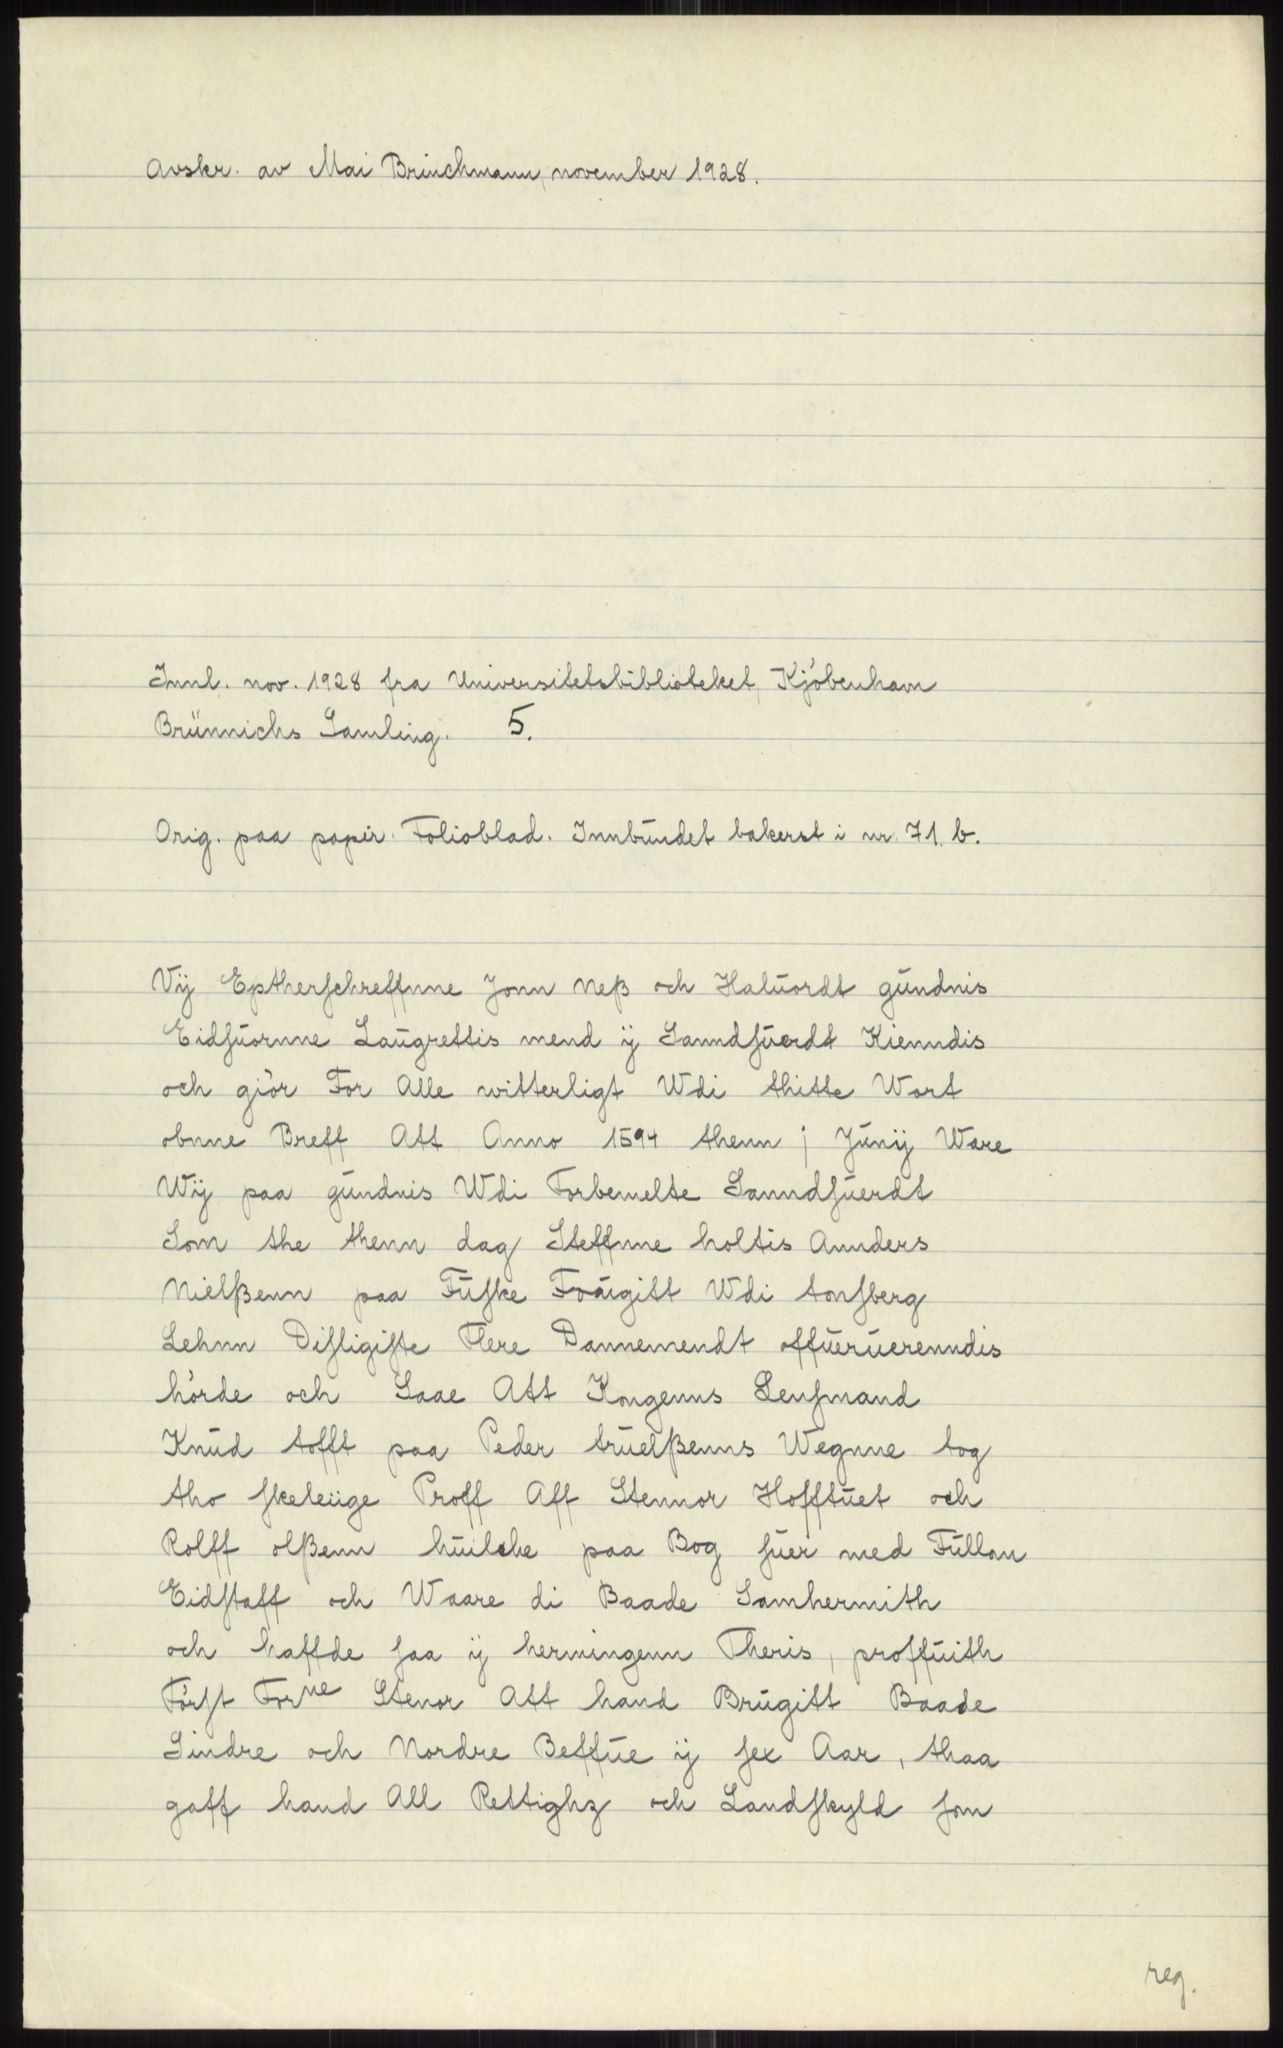 Avskr. av Mai Brinchmann, november 1928.
Innl. nov. 1928 fra Universitetsbiblioteket, Kjøbenhavn
Brünnichs Samling. 5.
Orig. paa papir. Folioblad. Innbundet bakerst i nr. 71. b.
Vÿ Eptherschreffnne Jonn Neß och Haluordt gundnis
Eidsuornne Laugrettis mend ÿ Sanndsuerdt Kienndis
och giør For Alle witterligt Wdi thitte Wort
obnne Breff Att Anno 1594 thenn j Junÿ Ware
Wÿ paa gundnis Wdi Forbemelte Sanndsuerdt
Som the thenn dag Steffnne holtis Annders
Nielßenn paa Fuske Froügitt Wdi tonsberg
Lehnn Disligiste Flere Dannemendt offueruerenndis
hørde och Saae Att Kongenns Lensmand
Knud tofft paa Peder truelßenns Wegnne tog
tho skeleuge Proff Aff Stennor Hofftuet och
Rolff olßenn huilche paa Bog suer med Fullan
Eidstaff och Waare di Baade Samhermith
och haffde saa ÿ hermingenn Theris, proffuith
Først Forne Stenor Att hand Brugitt Baade
Sindre och Nordre Beffue ÿ sex Aar, thaa
gaff hand All Rettighz och Landskyld som
reg.